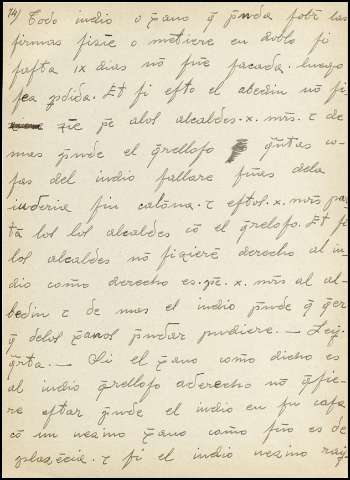 14) Todo indio o xp̃ano q̃ p̃nda sobr̃ las
firmas fiziẽ o metiere en doblo si
fasta ix dias nõ fuẽ sacada. luego
sea p̃dida. Et si esto el abedin nõ fi
ziẽ pẽ alos alcaldes .x. mr̃s. ꞇ de
mas p̃nde el q̃relloso q̃ñtas co-
sas del indio fallare fuas dela
iuderia sin calõna. ꞇ estos .x. mr̃s pa
tã los los alcaldes cõ el q̃reloso. Et si
los alcaldes nõ fizierẽ derecho al in-
dio comõ derecho es. pẽ .x. mr̃s al al-
bedin ꞇ de mas el indio p̃nde q̃ q̃er
q̃ delos xp̃anos p̃ndar pudiere. — Ley.
q̃rta. — Si el xp̃ano comõ dicho es
al indio q̃relloso aderecho nõ q̃sie-
re estar p̃nde el indio en su casa
cõ un uezino xp̃ano comõ fuo es de
plazẽcia. ꞇ si el indio uezino